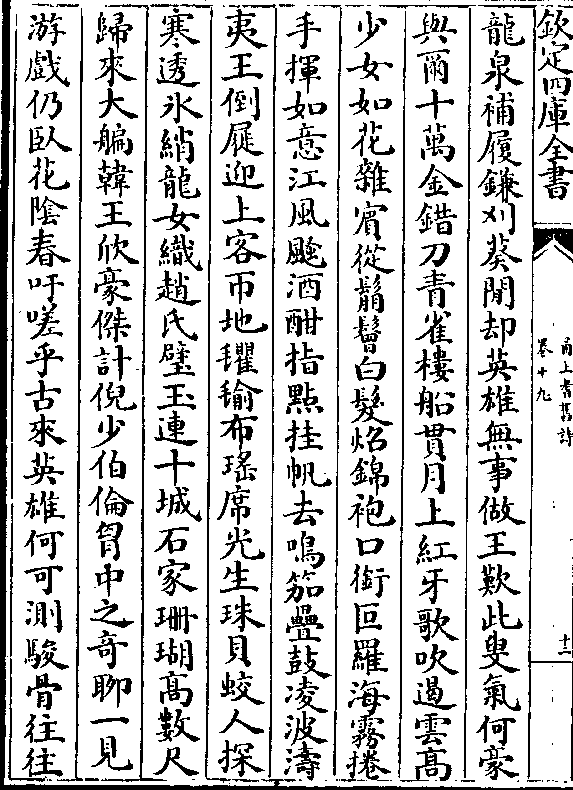 欽定四庫全書
甬上耆舊詩
卷十九
十二
龍泉補履鎌刈葵閒却英雄無事做王歎此叟氣何豪
與爾十萬金錯刀青雀樓船貫月上紅牙歌吹遏雲高
少女如花雜賓從鬅鬙白髮炤錦袍口銜叵羅海霧捲
手揮如意江風颭酒酣指點挂帆去鳴笳疊鼓凌波濤
夷王倒屣迎上客帀地氍毹布瑤席光生珠貝蛟人探
寒透氷綃龍女織趙氏璧玉連十城石家珊瑚髙數尺
歸來大艑韓王欣豪傑計倪少伯倫胷中之奇聊一見
游戲仍臥花陰春吁嗟乎古來英雄何可測駿骨往往